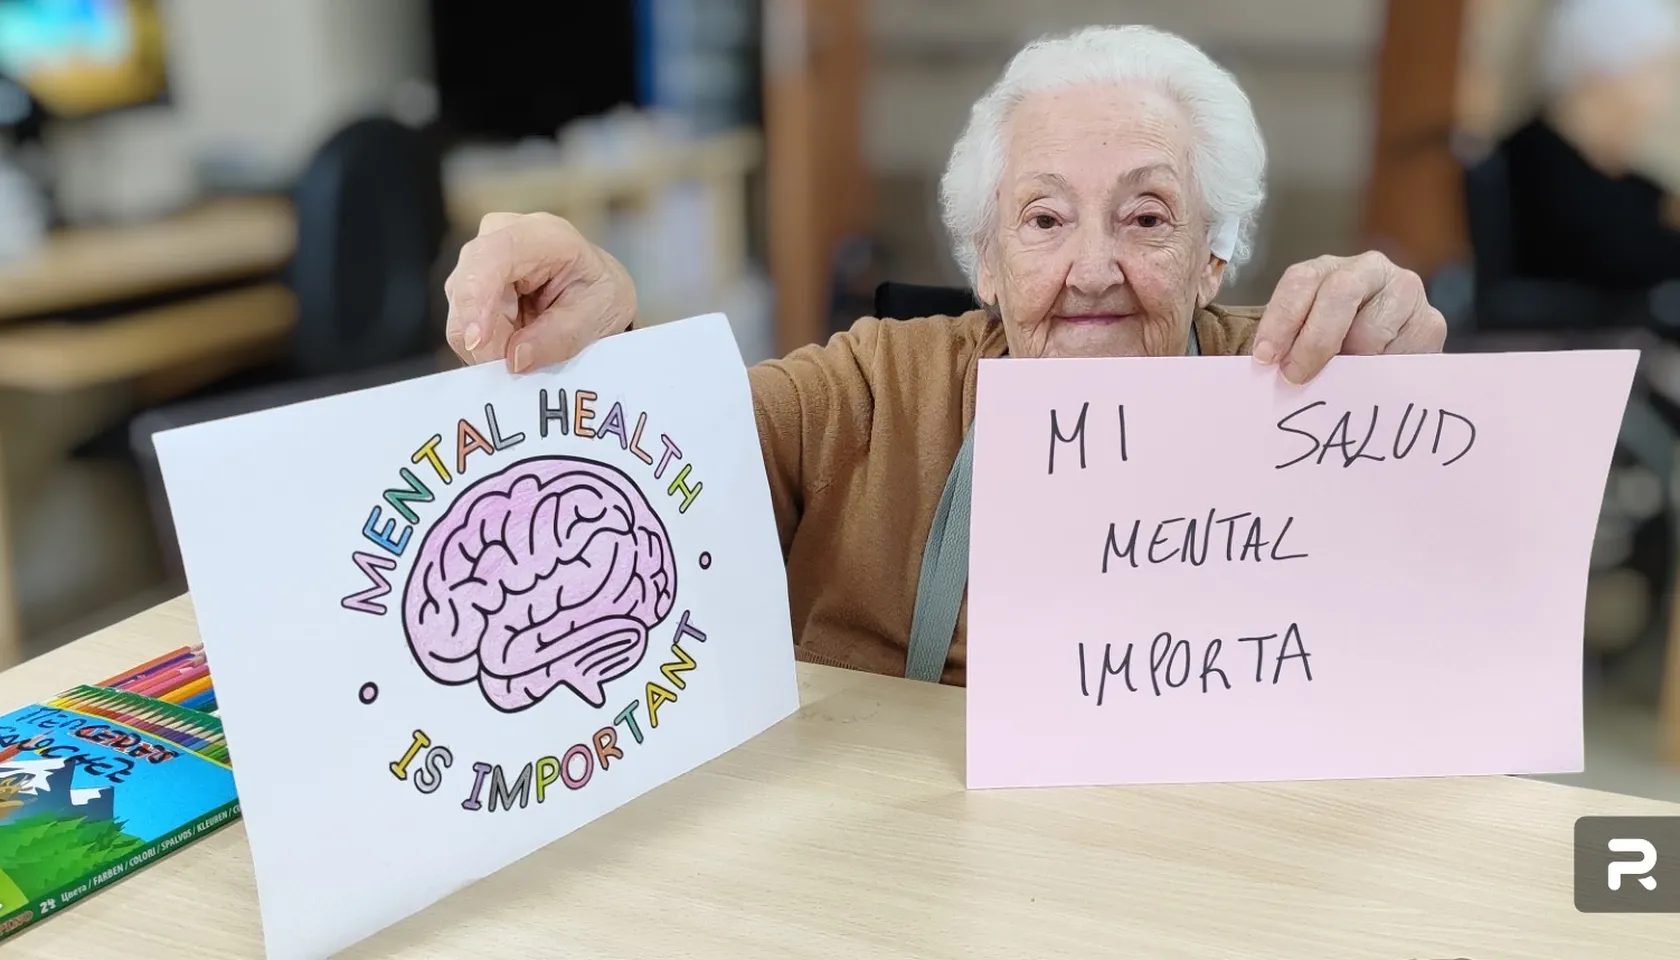 MENTAL HEALTH
IS IMPORTANT
MI SALUD
MENTAL
IMPORTA
24 Цвета / FARBEN / COLORI / SPALVOS / KLEUREN /